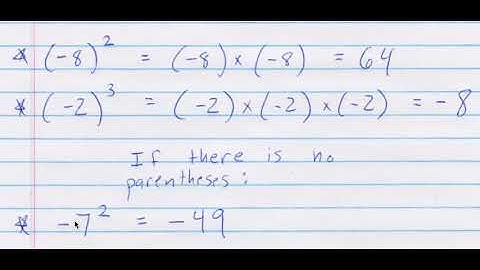 * (-8)² = (-8) × (-8) = 64
* (-2)³ = (-2) × (-2) × (-2) = -8
If there is no
parentheses:
* -7² = -49